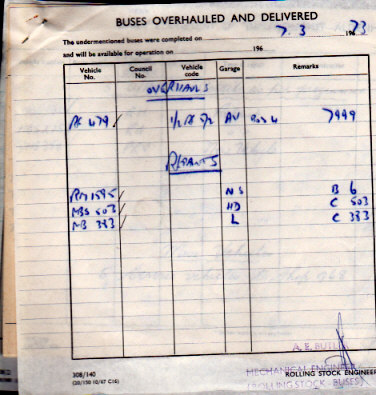 BUSES OVERHAULED AND DELIVERED
The undermentioned buses were completed on 7. 3 1973
and will be available for operation on 196
Vehicle No. Council No. Vehicle code Garage Remarks
OVERHAULS
RF 479 / AV 7999
REPAINTS
RM 1595 / NS B 6
MBS 503 / HD C 503
MB 383 / L C 383
A. E. BUTL
MECHANICAL ENGINEER
ROLLING STOCK ENGINEER
(ROLLING STOCK - BUSES)
308/140
(20/150 10/67 C16)